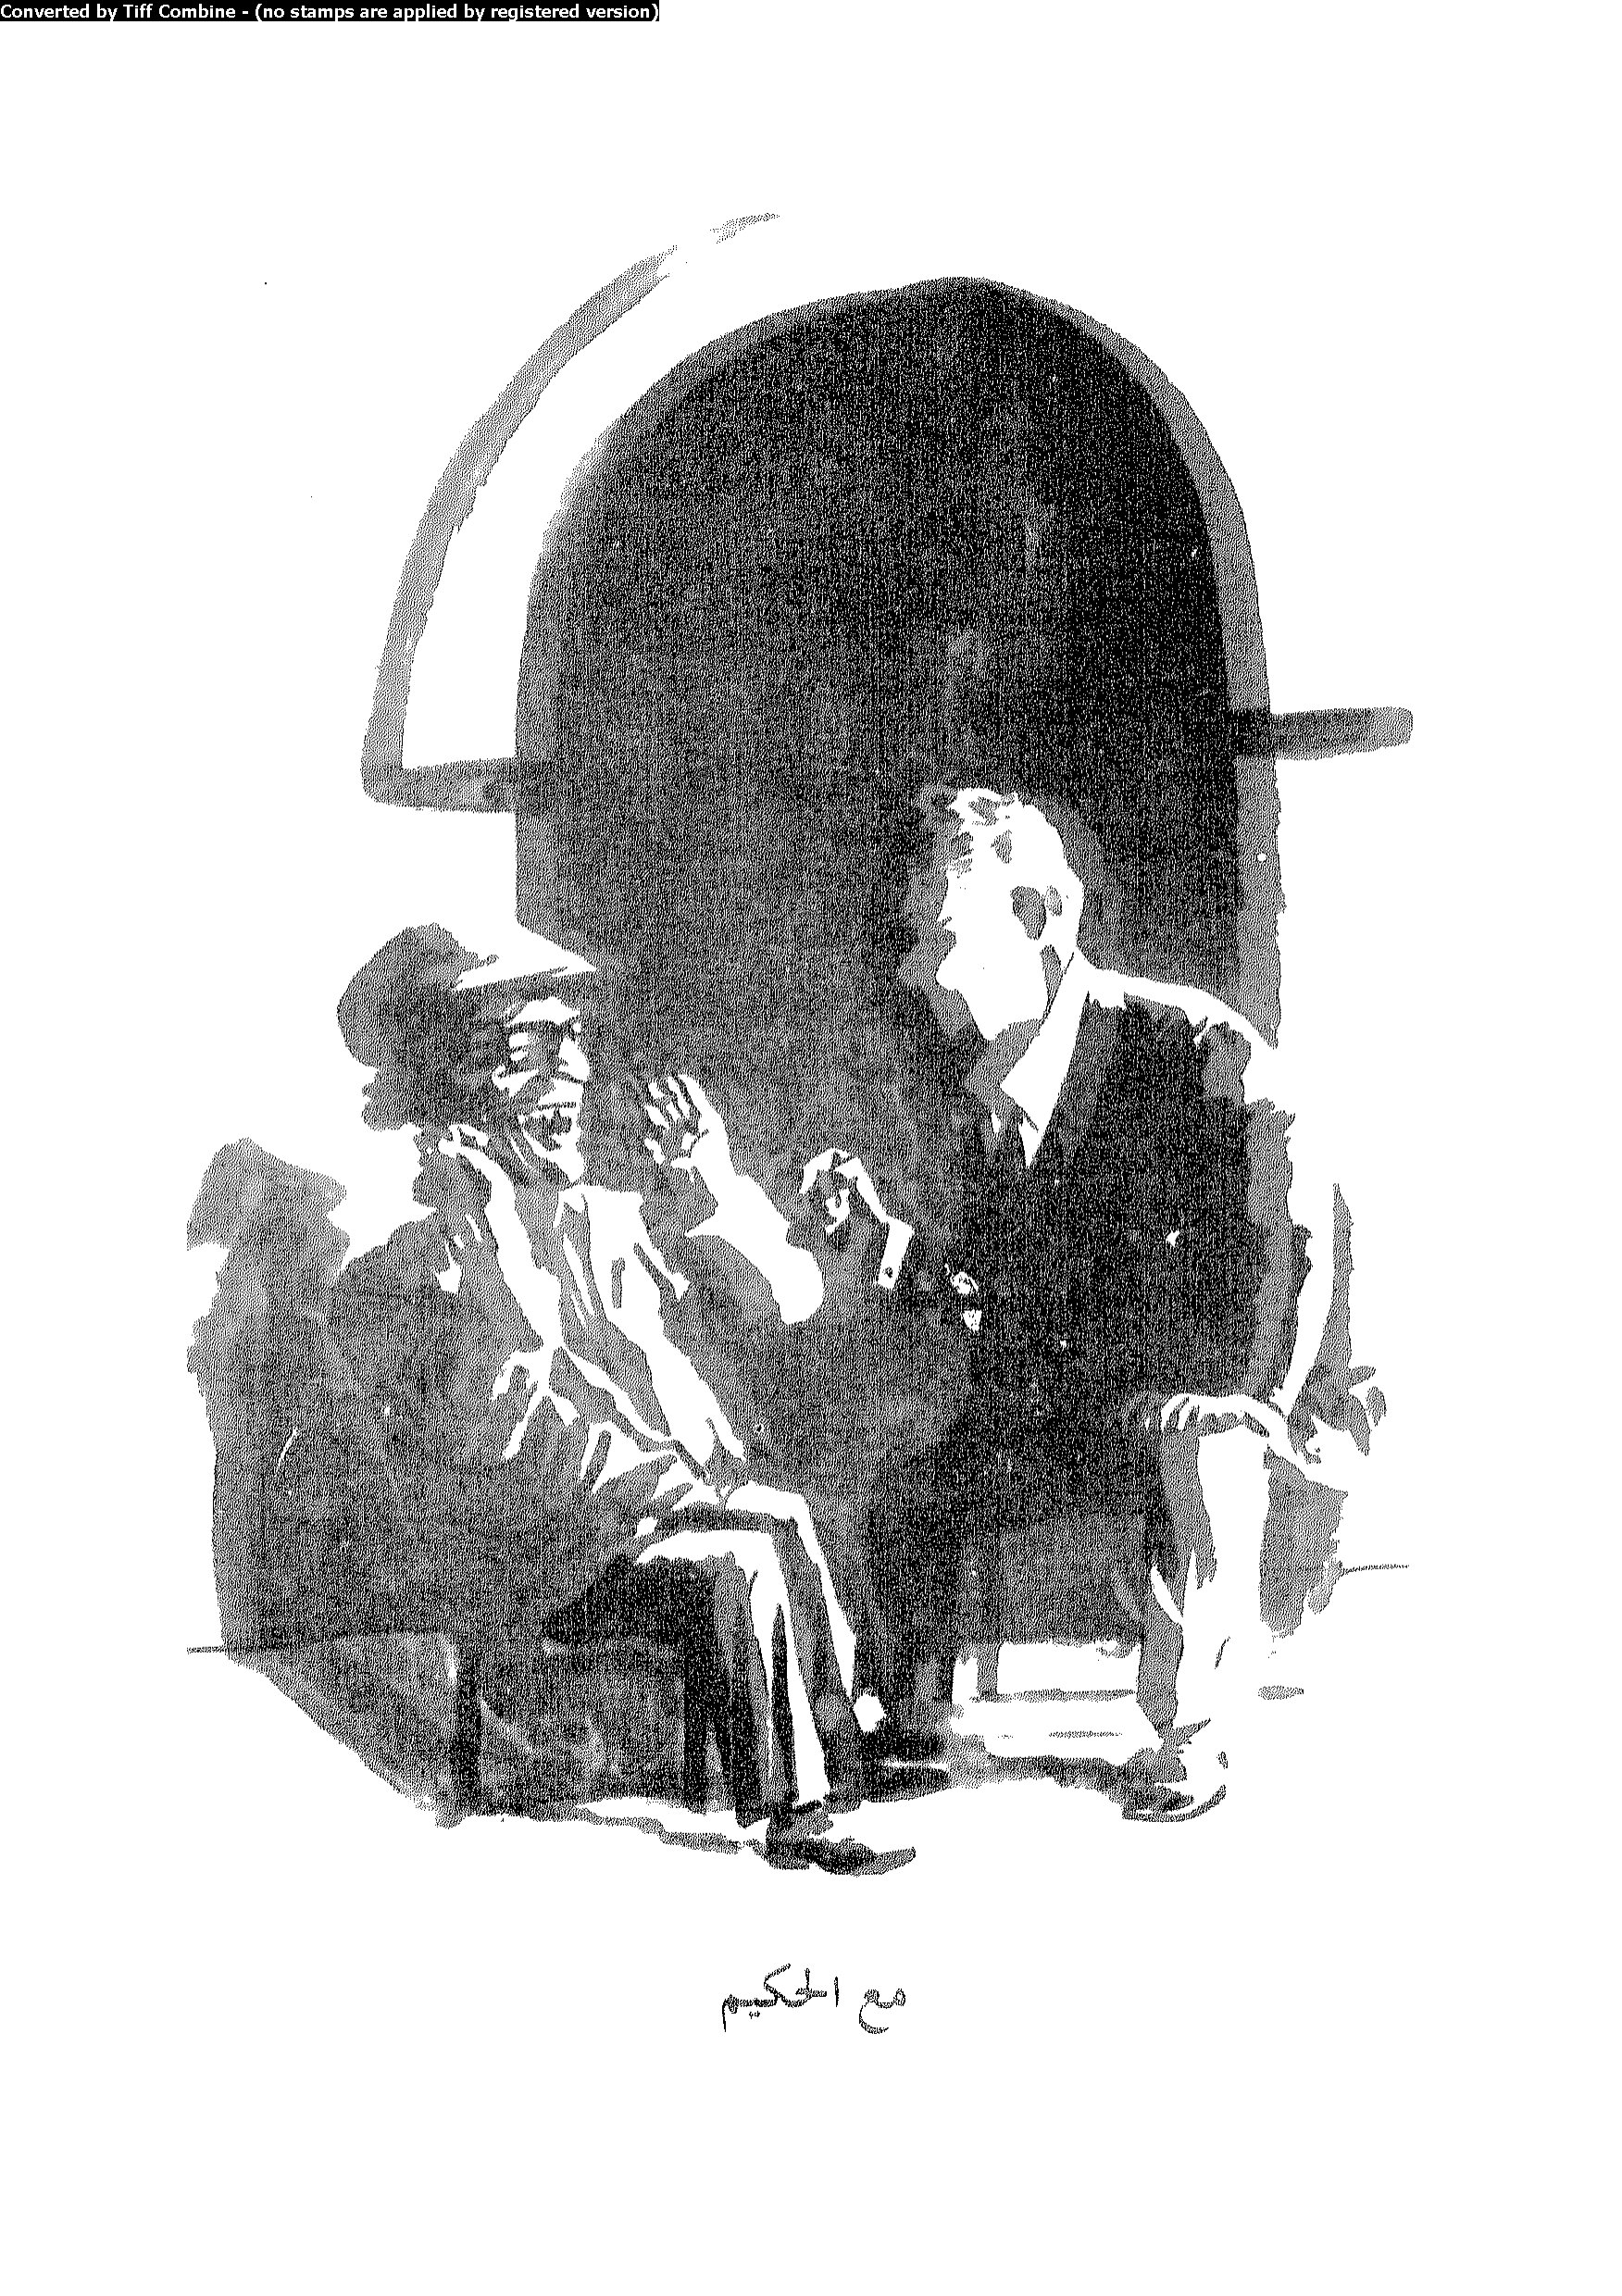 Converted by Tiff Combine - (no stamps are applied by registered version)
مع الحكيم